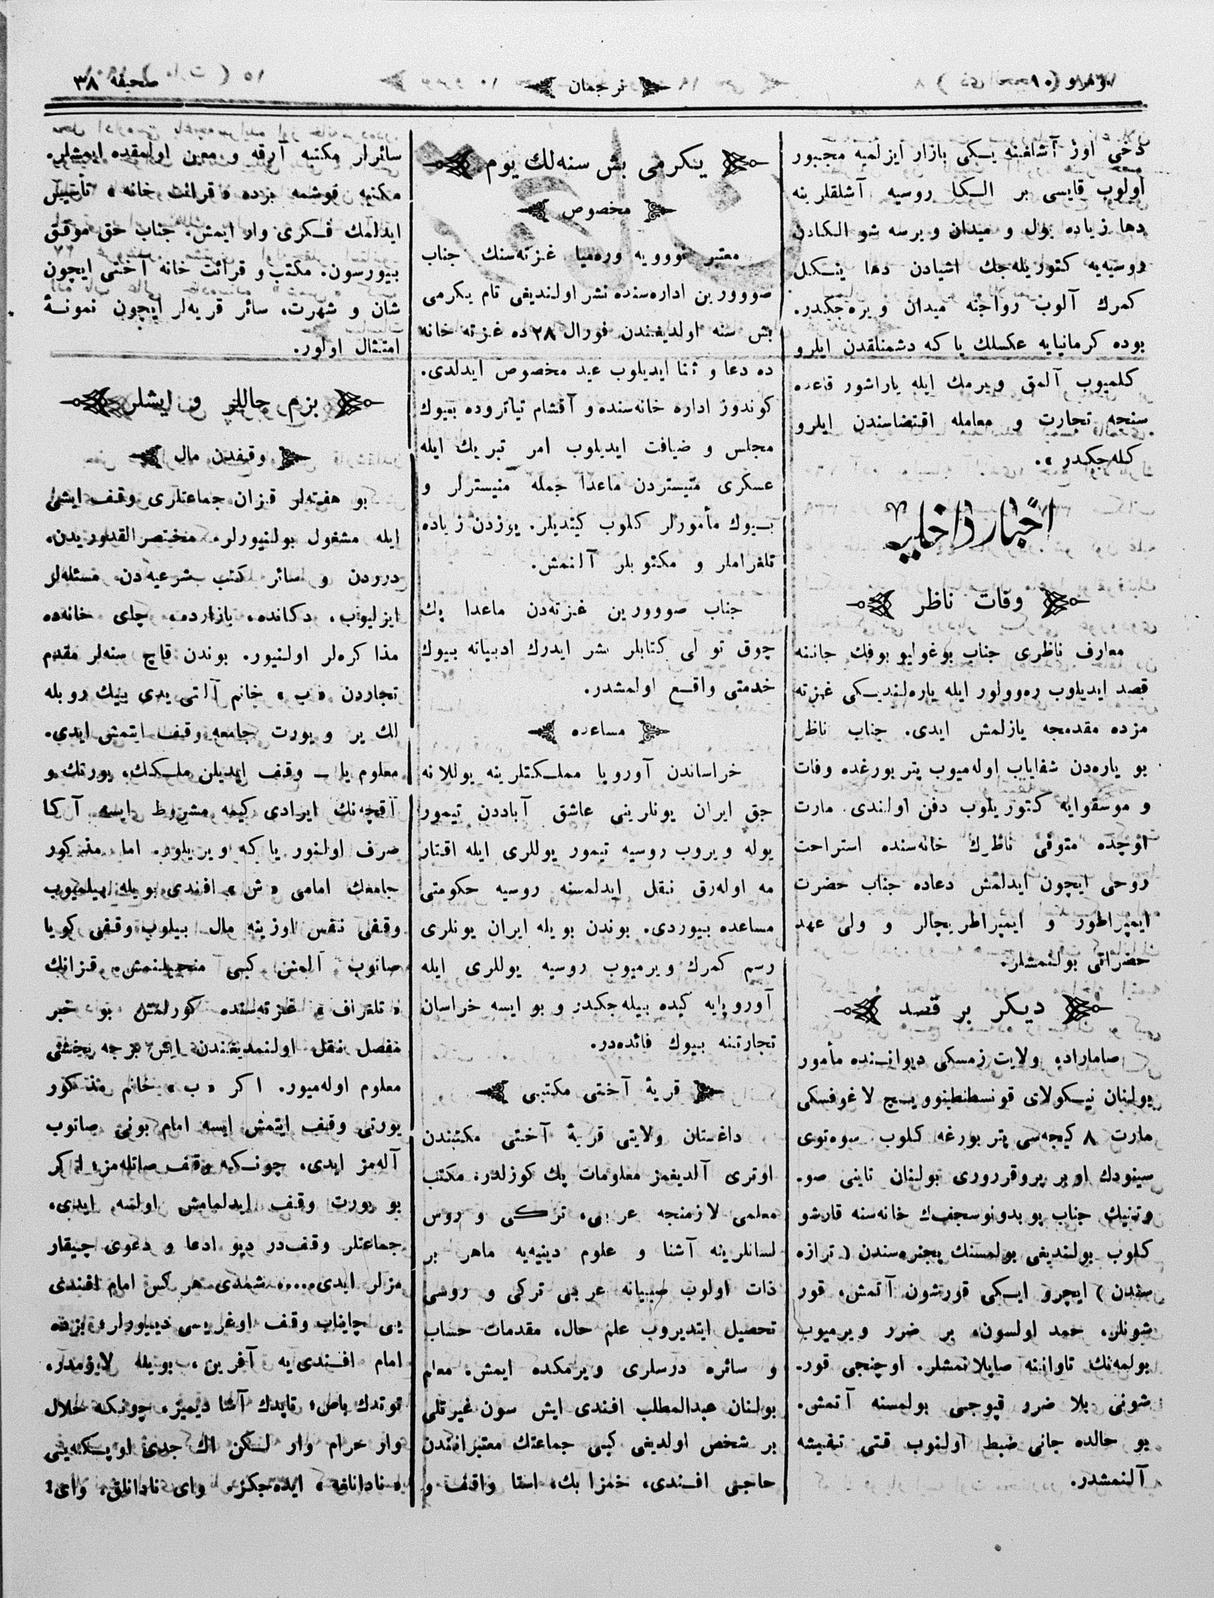 نومرو ١٠
ترجمان
صحیفه ٣٨
دخی اوز آشلغینه یـكی بازار ایزلمیه مجبور
اولوب قایسی بر الـكا روسیه آشلقلرینه
دها زیاده یول و میدان ویرسه شو الـكادن
روسیه‌یه كتوریله‌جك اشیادن دها ینـكل
كمرك آلوب رواجنه میدان ویره‌جكدر.
بوده كرمانیایه عكسلك یا كه دشمنلقدن ایلرو
كلمیوب آلمق ویرمك ایله یاراشور قاعده
سنجه تجارت و معامله اقتضاسندن ایلرو
كله‌جكدر».
اخبار داخلیه
وفات ناظر
معارف ناظری جناب بوغولیوبوفك جاننه
قصد ایدیلوب ره‌وولور ایله یاره‌لندیـكی غزته
مزده مقدمجه یازلمش ایدی. جناب ناظر
بو یاره‌دن شفایاب اوله‌میوب پتربورغده وفات
و موسقوایه كتوریلوب دفن اولندی. مارت
اوچده متوفی ناظرك خانه‌سنده استراحت
روحی ایچون ایدلمش دعاده جناب حضرت
ایمپراطور و ایمپراطریچالر و ولی عهد
حضراتی بولنمشلر.
دیكر بر قصد
صاماراده ولایت زمسكی دیوانـنده مأمور
بولنان نیـكولای قونسطنطینوویـچ لاغوفسكی
مارت ٨ كیجه‌سی پتربورغه كلوب سوه‌توی
سینودك اوبر پروقروری بولنان تاینی صو-
وتنیك جناب پوبدونوسجف‌ك خانه‌سنه قارشو
كلوب بولندیغی بولمسنك پنجره‌سندن (ترازه
سندن) ایچرو ایـكی قورشون آتمش. قور
شونلر، حمد اولسون، بر ضرر ویرمیوب
بولمه‌نك تاواننه صاپلانمشلر. اوچنجی قور-
شونی بلا ضرر قپوجی بولمسنه آتمش.
بو حالده جانی ضبط اولنوب قتی تفیشه
آلنمشدر.
یـكرمی بش سنه‌لك یوم
مخصوص
معتبر نوویه وره‌میا غزته‌سنك جناب
صووورین اداره‌سنده نشر اولندیغی تام یكرمی
بش سنه اولدیغندن فورال ٢٨ ده غزته خانه
ده دعا و ثنا ایدیلوب عید مخصوص ایدلدی.
كوندوز اداره خانه‌سنده و آقشام تیاتروده بیوك
مجلس و ضیافت ایدیلوب امر تبریك ایله
عسكری منیستردن ماعدا جمله منیسترلر و
بیوك مأمورلر كلوب كیتدیلر. یوزدن زیاده
تلغراملر و مكتوبلر آلنمش.
جناب صووورین غزته‌دن ماعدا پك
چوق تورلی كتابلر نشر ایدرك ادبیاته بیوك
خدمتی واقـع اولمشدر.
مساعده
خراساندن آوروپا مملـكتلرینه یوللانه
جق ایران یونلرینی عاشق آباددن تیمور
یوله ویروب روسیه تیمور یوللری ایله اقتار
مه اوله‌رق نـقل ایدلمسنه روسیه حكومتی
مساعده بیوردی. بوندن بویله ایران یونلری
رسم كمرك ویرمیوب روسیه یوللری ایله
آوروپایه كیده بیله‌جكدر و بو ایسه خراسان
تجارتـنه بیوك فائده‌در.
قریهٔ آختی مكتبی
داغستان ولایتی قریهٔ آختی مكتبندن
اوتری آلدیغمز معلومات پك كوزلدر. مكتب
معلمی لازمنجه عربی، تركی و روس
لسانلرینه آشنا و علوم دینیه‌یه ماهر بر
ذات اولوب صبیانه عربی تركی و روسی
تحصیل ایتدیروب علم حال، مقدمات حساب
و سائره درسلری ویرمكده ایمش. معلم
بولنان عبدالمطلب افندی ایش سون غیرتلی
بر شخص اولدیغی كبی جماعتك معتبرانندن
حاجی افـندی، خمزا بك، استا واقف و
سائرلر مكتبه آرقه و معین اولمقده ایمشلر.
مكتبه قوشمه برده «قرائت خانه» تأسیس
ایدلمك فـكری وار ایمش. جناب حق موفق
بیورسون. مكتب و قرائت خانه آختی ایچون
شان و شهرت، سائر قریه‌لر ایچون نمونهٔ
امتثال اولور.
بزم حاللر و ایشلر
وقیفدن مال
بو هفته‌لر قزان جماعتلری وقف ایشی
ایله مشغول بولنیورلر. مختصر القدوریدن،
دررودن و سائر كتب شرعیه‌دن مسئله‌لر
ایزلیوب، دكانده، بازارده، چای خانه‌ده
مذاكره‌لر اولنیور. بوندن قاچ سنه‌لر مقدم
تجاردن «ب» خانم آلتی یدی بیك روبله
لك یر و یورت جامعه وقف ایتمش ایدی.
معلوم یا ــ وقف ایدیلن ملـكك، یورتك و
آقچه‌نك ایرادی كیمه مشروط ایسه آ كا
صرف اولنور یا كه ویریلور. اما مذكور
جامعك امامی «ش» افندی بویله بیلمیوب
وقفی نفس اوزینه مال بیلوب وقفی كویا
صاتوب آلمش كبی منحیلنمش. قزانك
«تلغراف» غزته‌سنده كورلمش بو خبر
مفصل نقل اولنمدیغندن ایش برجه یخشی
معلوم اوله‌میور. اكر «ب» خانم مذكور
یورتی وقف ایتمش ایسه امام بونی صاتوب
آله‌مز ایدی، چونـكه وقف صاتله‌مز؛ اكر
بو یورت وقف ایدلمامش اولسه ایدی،
جماعتلر وقف‌در دیو ادعا و دعوی چیقار
مزلر ایدی.... شمدی هر كس امام افندی
یی چایناب وقف اوغریسی دیییورلر و بزده
امام افـندی‌یه آفرین، بویله لازمدر،
توتدك باص؛ تاپدك آشا دیمیز، چونكه حلال
وار حرام وار لـكن اك جدی اوپكه‌یی
«نادانلغه» ایده‌جكز. وای نادانلق، وای!